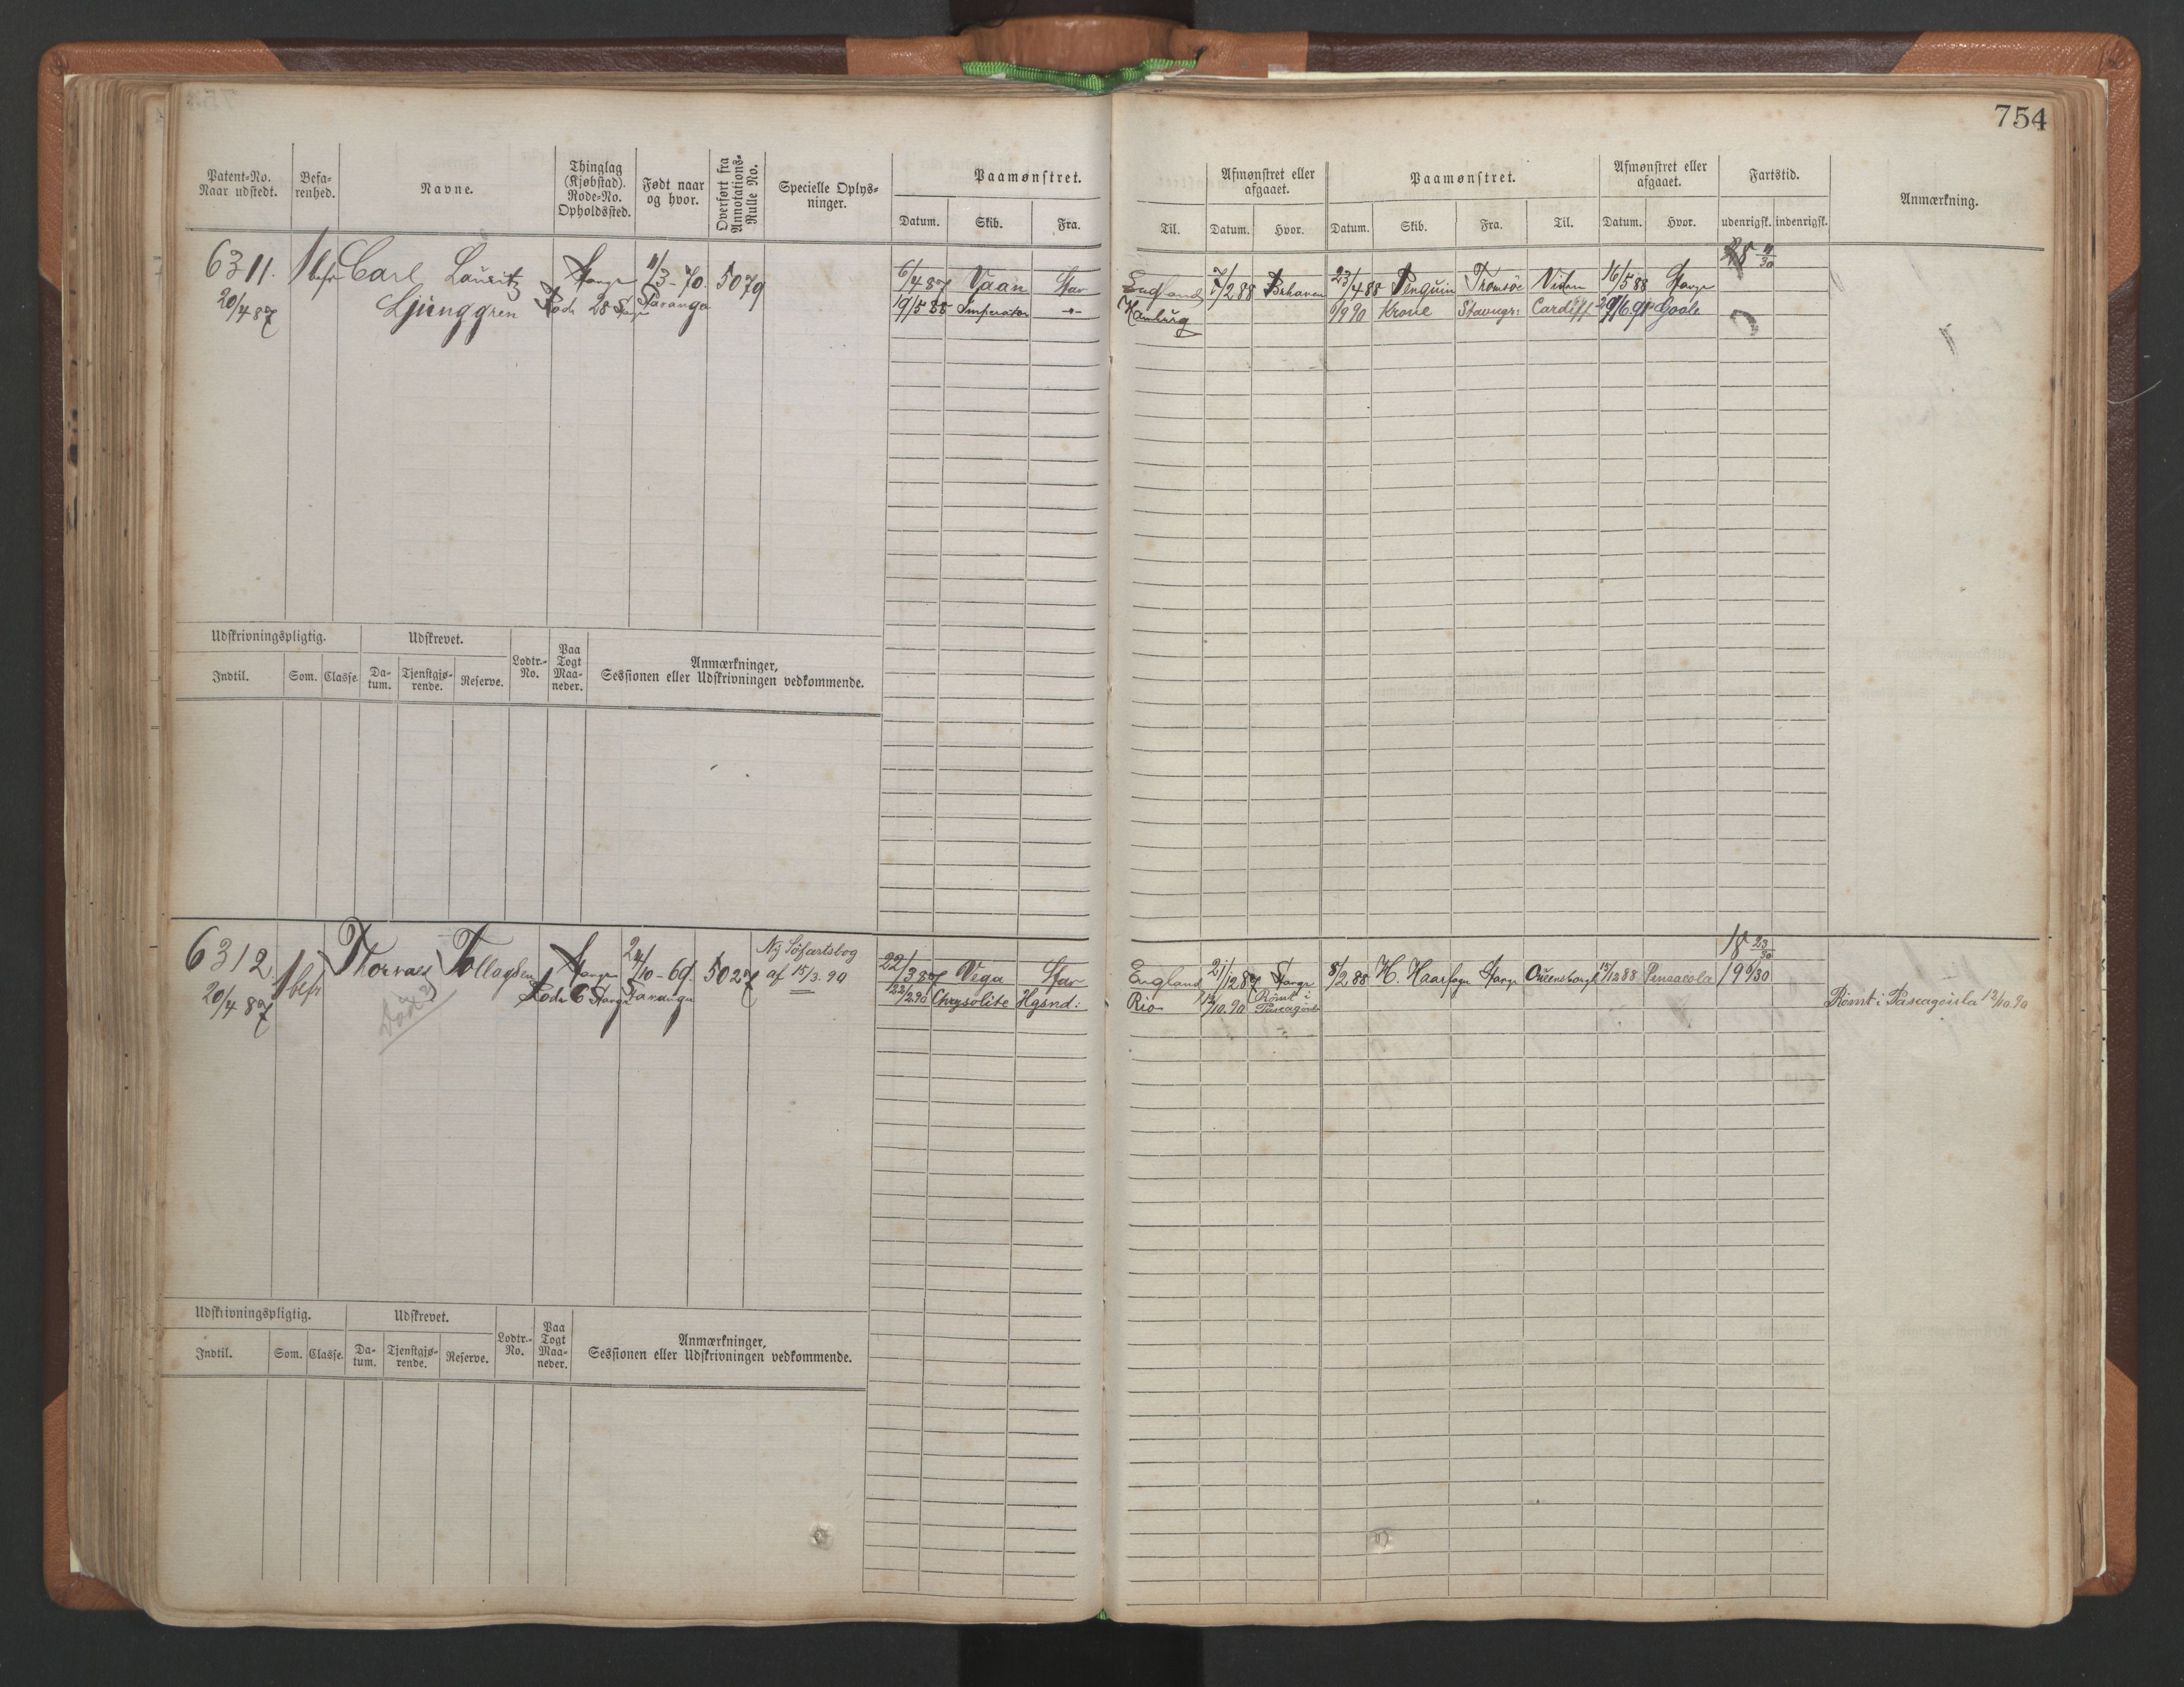 754
Patent-No. Naar udstedt.
Befarenhed.
Navne.
Thinglag (Kjøbstad). Rode-No. Opholdssted.
Født naar og hvor.
Overført fra Annotations-Rulle No.
Specielle Oplysninger.
Paamønstret.
Datum. Skib. Fra.
Til.
Afmønstret eller afgaaet.
Datum. Hvor.
Paamønstret.
Datum. Skib. Fra. Til.
Afmønstret eller afgaaet.
Datum. Hvor.
Fartstid.
udenrigsk. indenrigsk.
Anmærkning.
6311. 1 befr Carl Lauritz Stavgr 11/3-70. 5079
20/4 87 Ljunggren Rode 28 Stavgr Stavanger
6/4 87 Vaan Stav England 7/2 88 Brhaven 23/4 88 Penguin Tromsöe 16/5 88 Stavgr
19/5 88 Imperator -"- Hamburg 6/9 90 Krone Stavngr: Cardiff 29/6 91 Goole
Udskrivningspligtig. Udskrevet. Lodtr.-No. Paa Togt Maaneder. Anmærkninger, Sessionen eller Udskrivningen vedkommende.
Indtil. Som. Classe. Datum. Tjenstgjørende. Reserve.
6312 1 befr Thorvald Tollagsen Stavgr 24/10-69. 5027 Ny Söfartsbog
af 15/3. 90
20/4 87 Rode 6 Stavgr Stavanger
22/3 87 Vega Stav England 21/12 87 Stavgr 8/2 88 H. Haarfagr Stavgr 15/12 88 Pensacola
18 23/30
22/2 90 Chrysolite Hgsnd: Rio 12/10. 90 Rømt i Pascagoula
Rømt i Pascagoula 12/10. 90
Udskrivningspligtig. Udskrevet. Lodtr.-No. Paa Togt Maaneder. Anmærkninger, Sessionen eller Udskrivningen vedkommende.
Indtil. Som. Classe. Datum. Tjenstgjørende. Reserve.